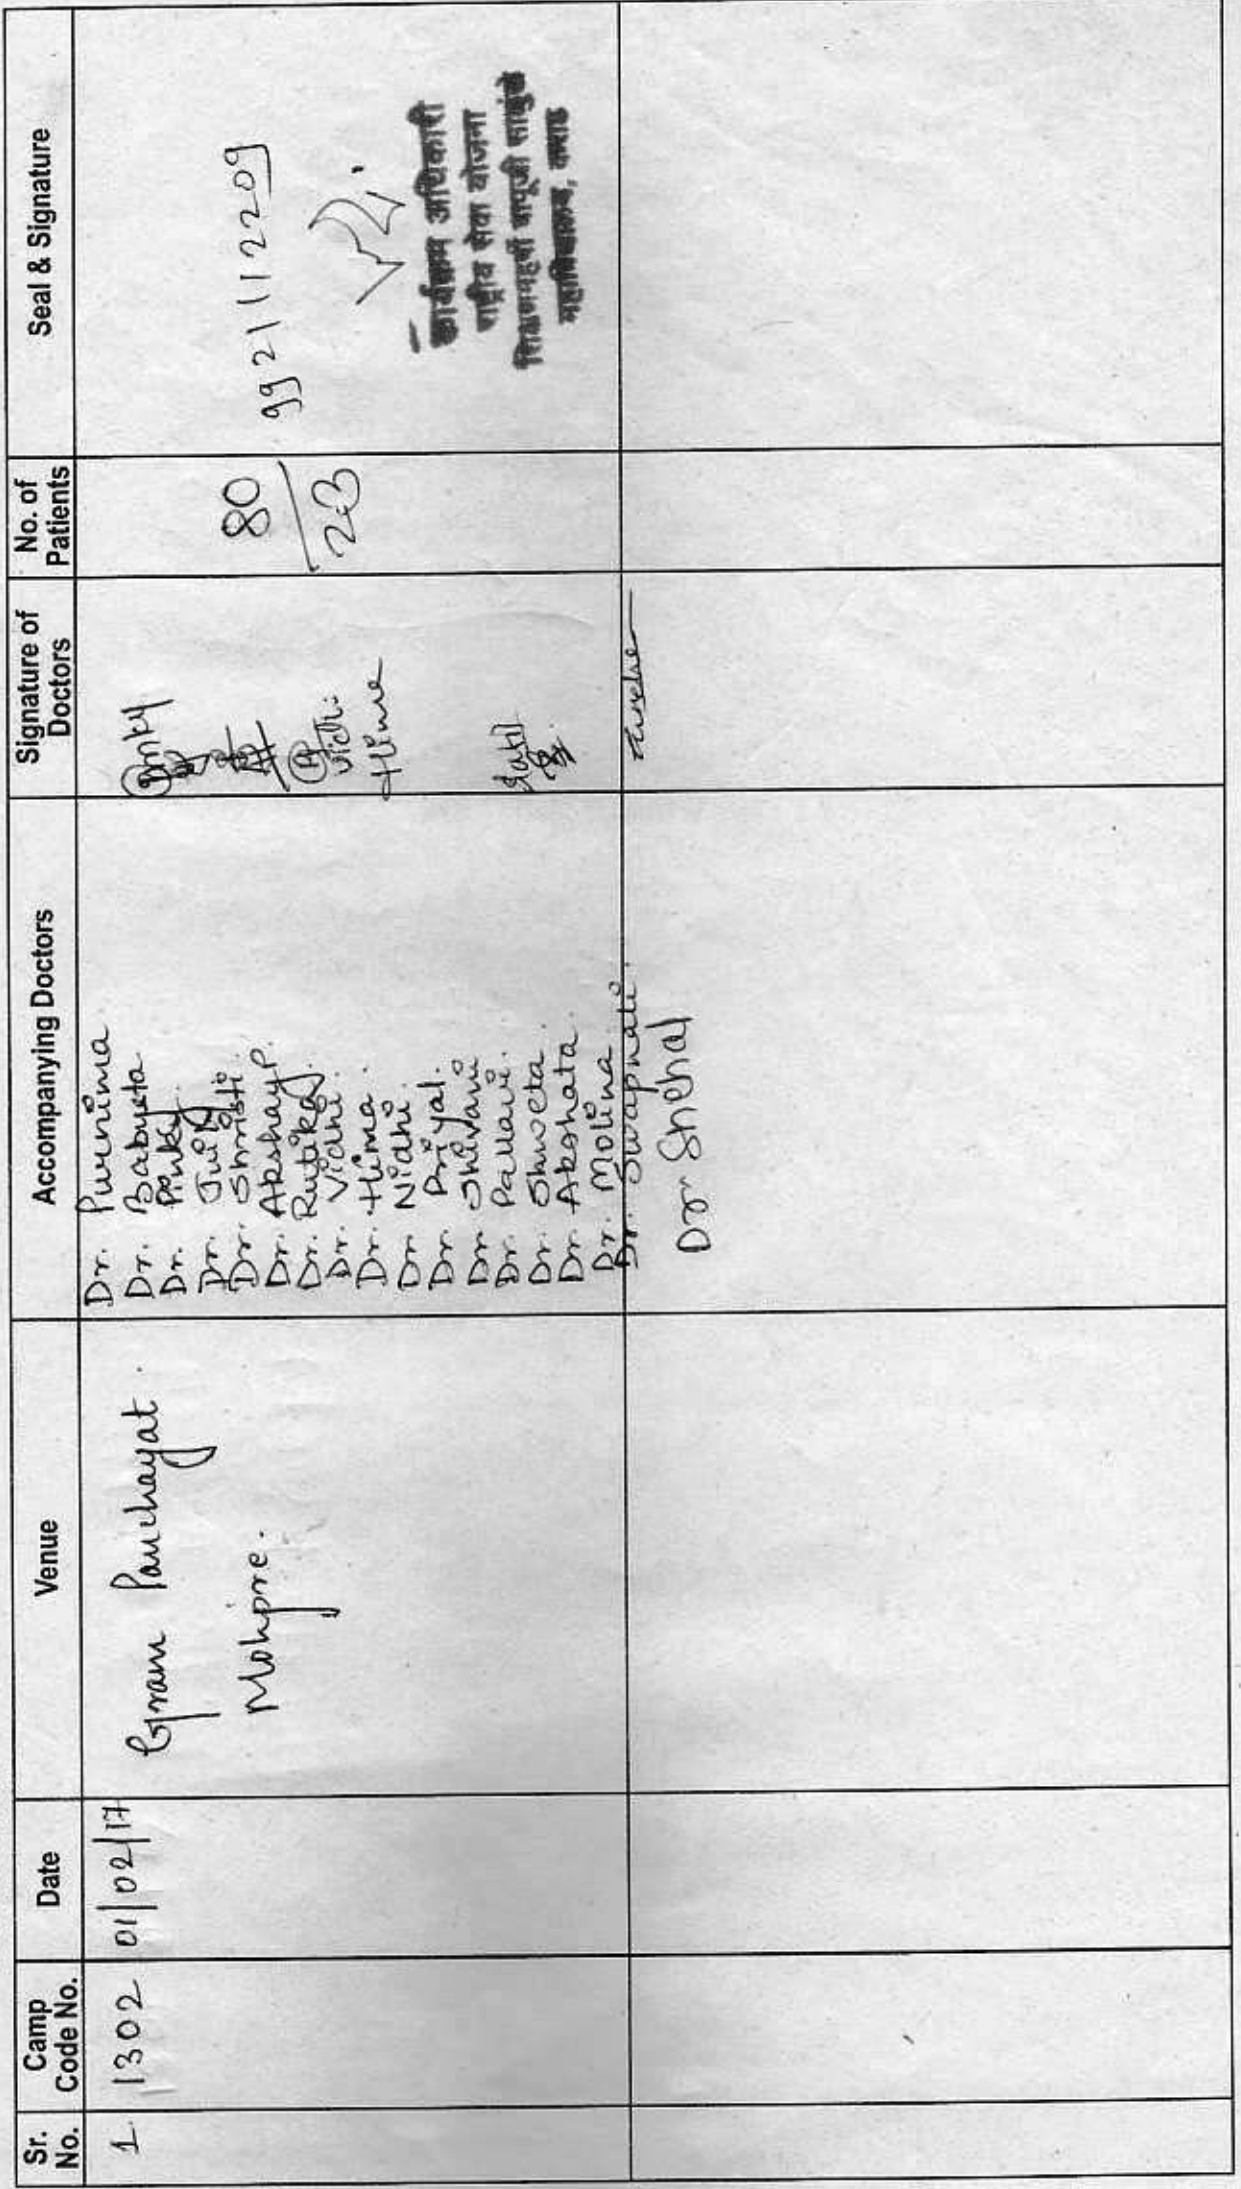 Sr. No.
Camp Code No.
Date
Venue
Accompanying Doctors
Signature of Doctors
No. of Patients
Seal & Signature
1
1302
01/02/17
Gram Panchayat.
Mohpre.
Dr. Purnima
Dr. Babyeta
Dr. Pinky
Dr. Juily
Dr. Shristi.
Dr. Akshay P.
Dr. Rutikaj.
Dr. Vidhi.
Dr. Hima.
Dr Nidhi.
Dr. Priyal.
Dr Shivani
Dr. Pallavi.
Dr. Shweta.
Dr. Akshata.
Dr. Molina
Dr. Swapnali.
Dr Snehal
Pinky
Vidhi
Hima
80
23
9921112209
कार्यक्रम अधिकारी
राष्ट्रीय सेवा योजना
शिक्षणमहर्षी बापूजी साळुंखे
महाविद्यालय, कराड